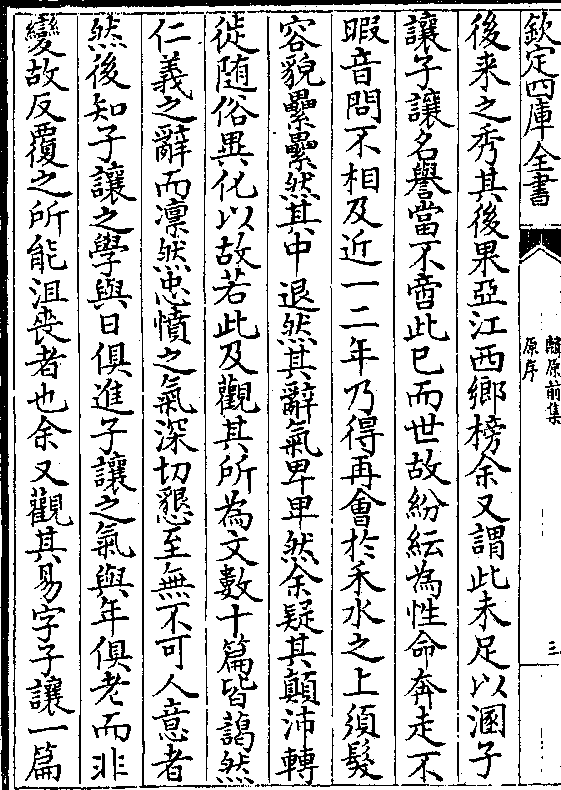 欽定四庫全書
麟原前集
原序
三
後来之秀其後果亞江西鄉榜余又謂此未足以溷子
讓子讓名譽當不啻此已而世故紛紜為性命奔走不
暇音問不相及近一二年乃得再會於禾水之上須髮
容貌纍纍然其中退然其辭氣卑卑然余疑其顛沛轉
徙随俗異化以故若此及觀其所為文數十篇皆藹然
仁義之辭而凛然忠憤之氣深切懇至無不可人意者
然後知子讓之學與日俱進子讓之氣與年俱老而非
變故反覆之所能沮喪者也余又觀其易字子讓一篇